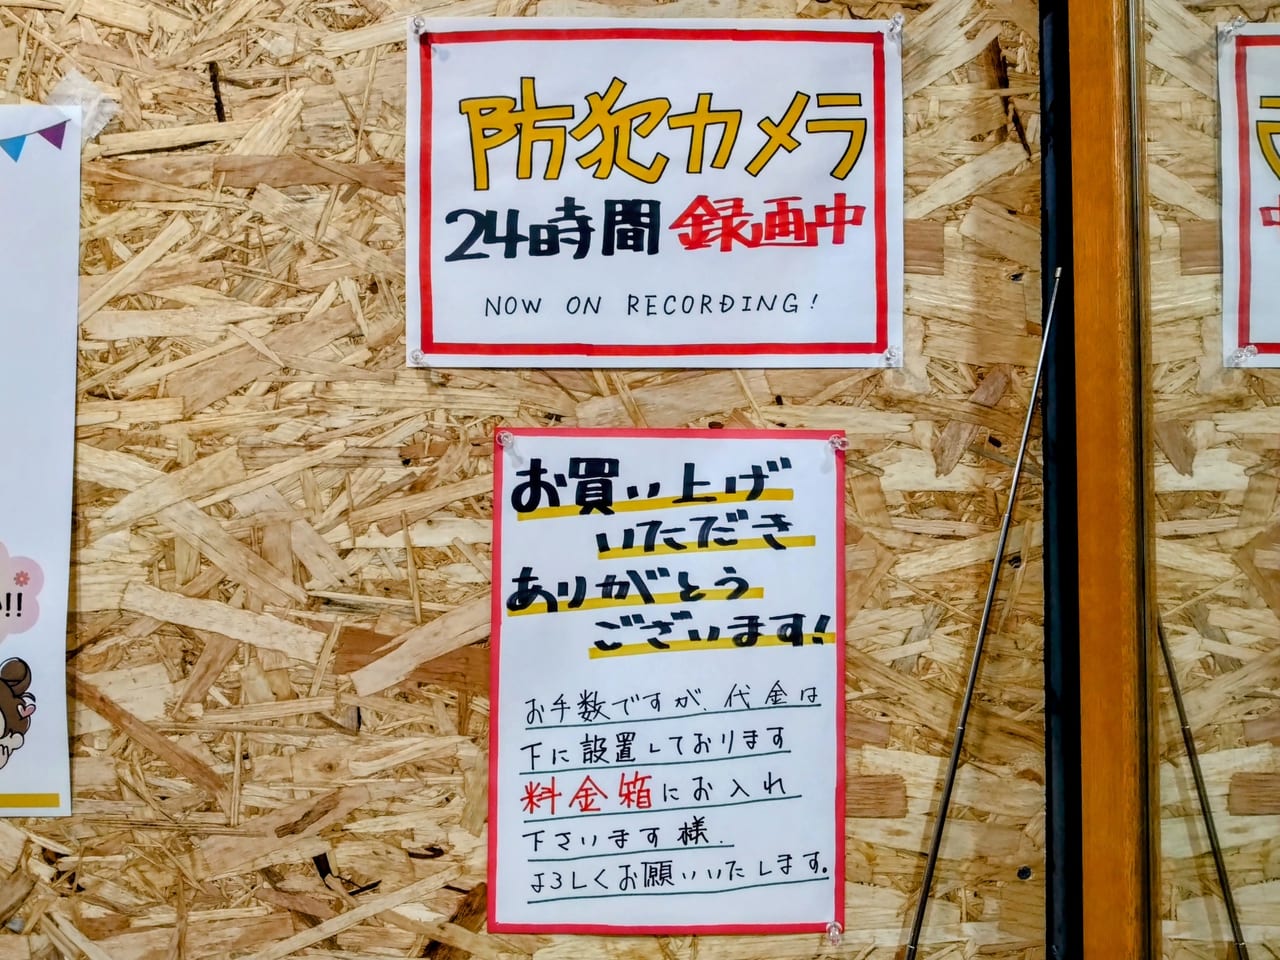 防犯カメラ
24時間 録画中
NOW ON RECORDING!
お買い上げ
いただき
ありがとう
ございます!
お手数ですが、代金は
下に設置しております
料金箱にお入れ
下さいます様、
よろしくお願いいたします。
!!